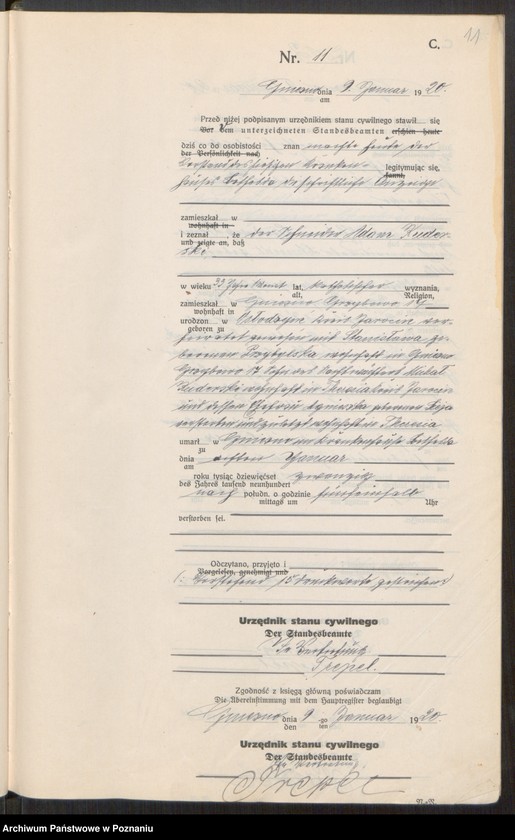 11
C.
Nr. 11
Gniezno dnia 9. Januar 1920.
am
Przed niżej podpisanym urzędnikiem stanu cywilnego stawił się
Vor dem unterzeichneten Standesbeamten erschien heute
dziś co do osobistości znan machte heute der
der Persönlichkeit nach
legitymując się,
kannt,
hauses Bethesda die schriftliche Anzeige
zamieszkał w
wohnhaft in
i zeznał, że der Schneider Adam Kuder-
und zeigte an, daß
ski
w wieku 33 Jahre lat, katholischer wyznania,
alt, Religion,
zamieszkał w Gniezno Grzybowo 17
wohnhaft in
urodzon w Kreis Jarocin ver-
geboren zu
heiratet gewesen mit Stanislawa ge-
borenen Przybylska wohnhaft in Gniezno
Grzybowo 17 Sohn des
Kuderski wohnhaft in Kreis Jarocin
und dessen Ehefrau Agnieszka geborenen
verstorben und zuletzt wohnhaft in
umarł w Gniezno im Krankenhause Bethesda
zu
dnia achten Januar
am
roku tysiąc dziewięćset zwanzig
des Jahres tausend neunhundert
nach połudn. o godzinie fünfeinhalb
mittags um Uhr
verstorben sei.
Odczytano, przyjęto i
Vorgelesen, genehmigt und
Vorstehend 15 Druckworte gestrichen
Urzędnik stanu cywilnego
Der Standesbeamte
In Vertretung
Trepel.
Zgodność z księgą główną poświadczam
Die Übereinstimmung mit dem Hauptregister beglaubigt
Gniezno dnia 9 -go Januar 1920.
den ten
Urzędnik stanu cywilnego
Der Standesbeamte
In Vertretung.
Trepel
Archiwum Państwowe w Poznaniu